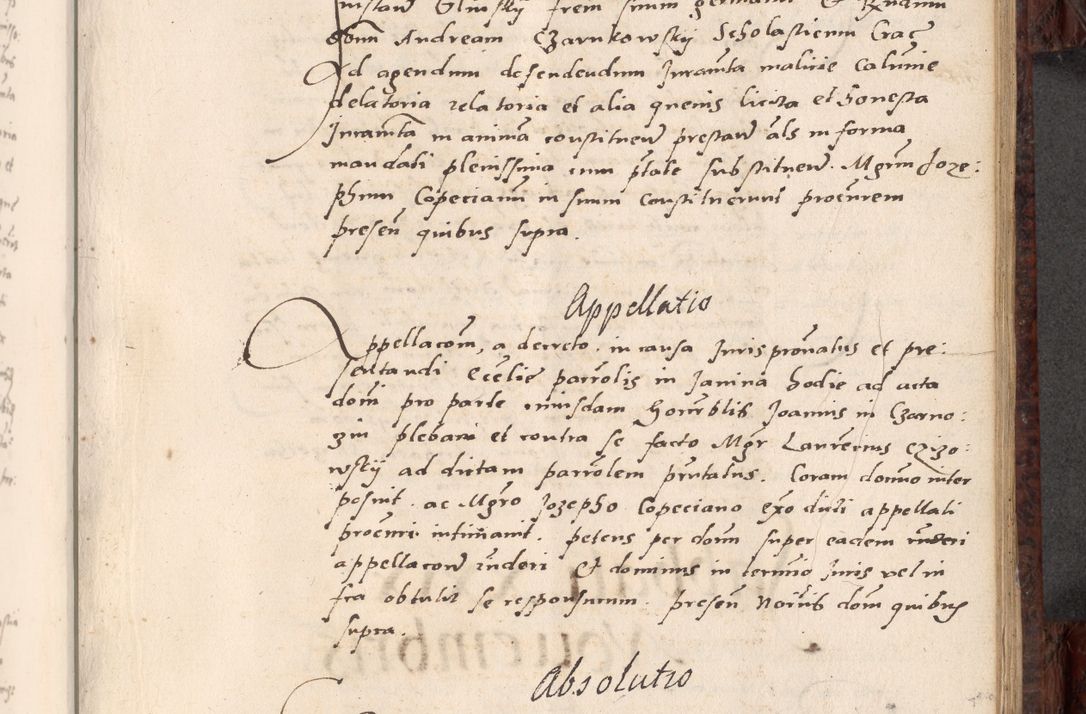 Andream Czarnkowskÿ Scholasticum Crac̃
Ad agendum defendendum Juram̃ta malicie Calum̃ie
delatoria relatoria et alia quevis licita et Honesta
Juram̃ta in animã constituen̄ prestan̄ als in forma
mandati plenissima cum p̃tate substituen̄. Mgrm̃ Joze:
phum Copecianũ in suum Constituerunt procũrem
presen̄ quibus supra.
Appellatio
Appellacom̃, a decreto. in causa Juris pronatus et pre:
sentandi Ecc̃lie parrõlis in Janina hodie ad acta
dom̃ pro parte cuiusdam Honor̃blis Joannis in Czarno:
zin plebani et contra se facto Mgr Laurẽncius czizo:
wskÿ ad dictam parrõlem pr̃ntatus. Coram domino inter
posuit. ac Mgr̃o Jozepho Copeciano ex̃o dicti appellati
procũri intimavit. petens per dom̃ super eadem
appellacom̃ r̃nderi Et dominus in termino Juris vel in
fra obtulit se responsurum. presen̄ Notariis dom̃ quibus
supra.
Absolutio